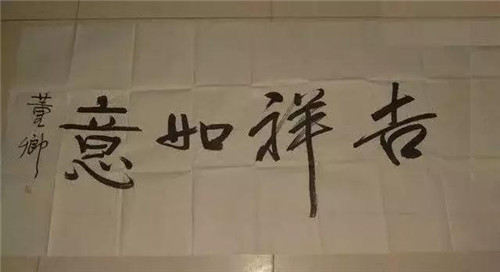 吉祥如意
董卿